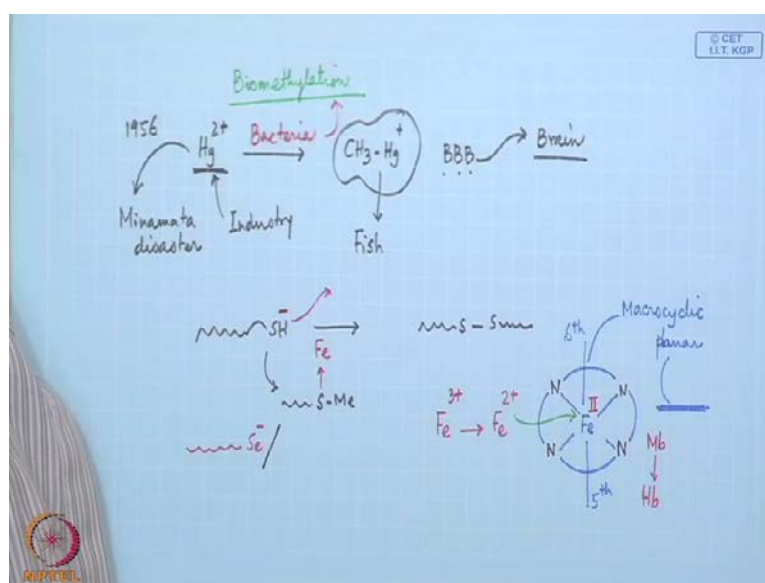 © CET
I.I.T. KGP
Biomethylation
1956
Hg2+
Bacteria
CH3-Hg+
BBB
Brain
Minamata
disaster
Industry
Fish
SH-
Fe
S-S
S-Me
Se-
Fe3+ → Fe2+
6th
Macrocyclic
planar
N
N
II
Fe
N
N
5th
Mb
Hb
NPTEL